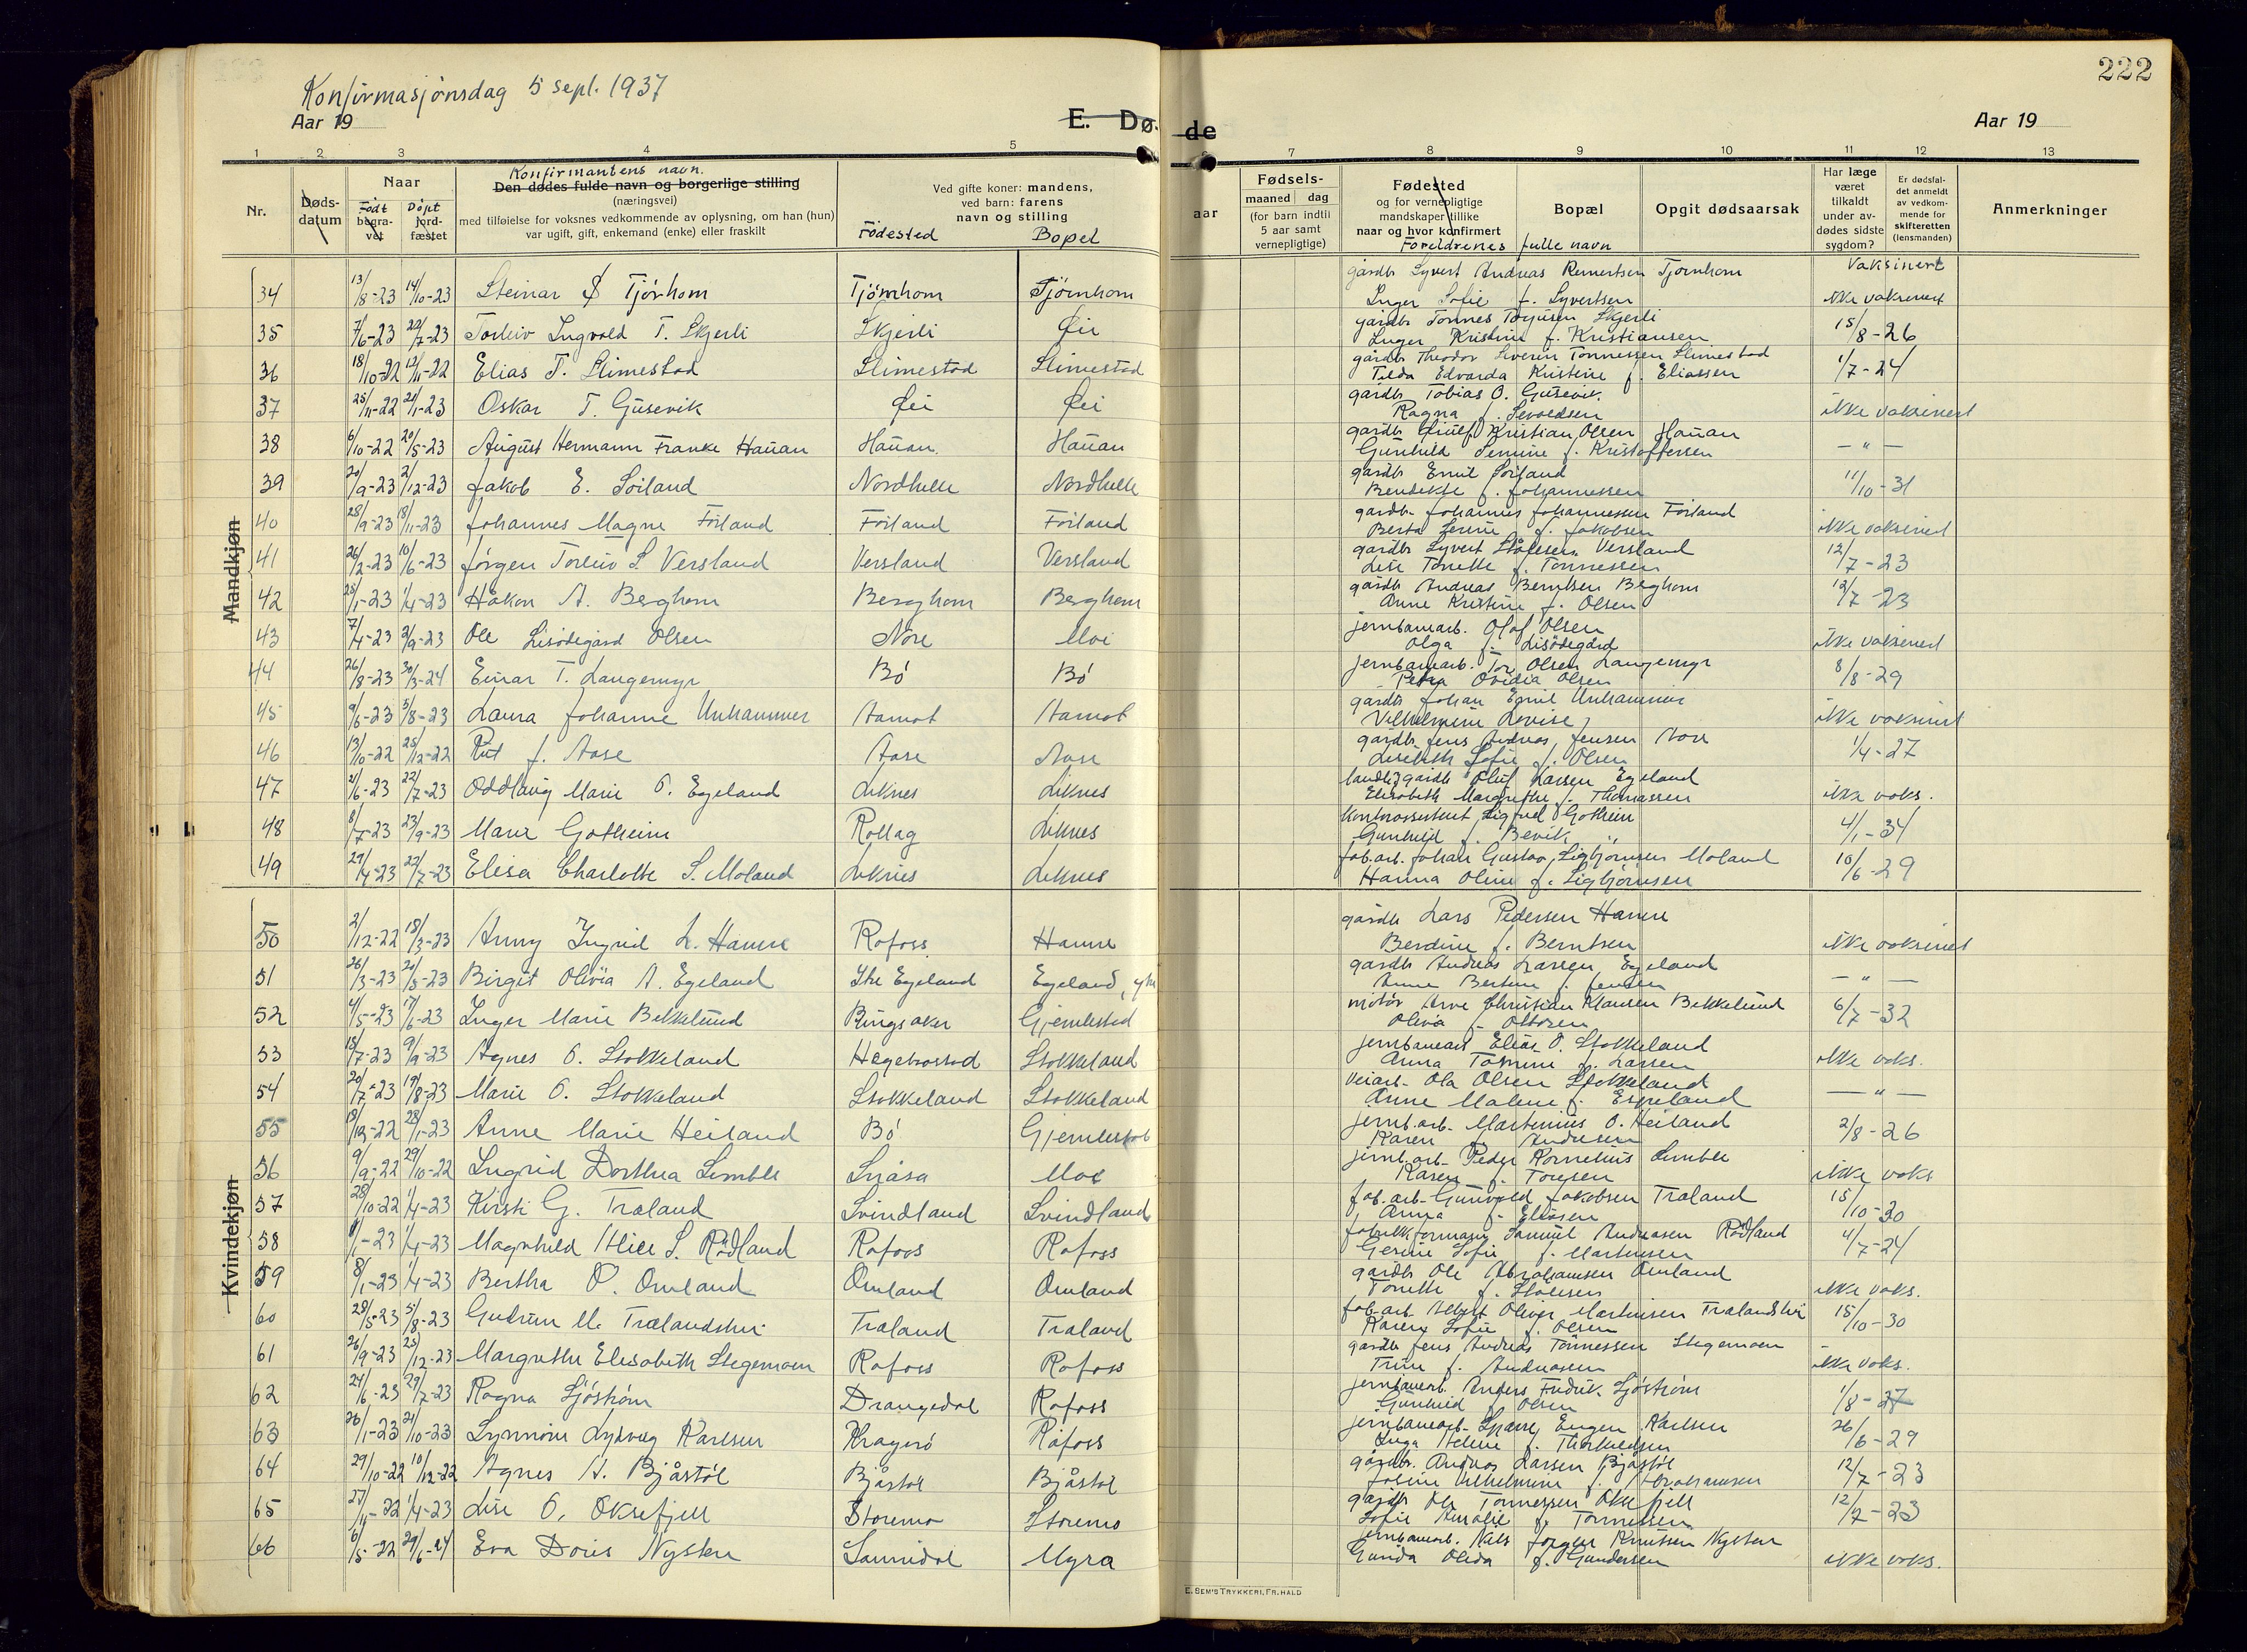 222
Konfirmasjónsdag 5 sept. 1937
Aar 19
E. Dø. de
Aar 19
1 2 3 4 5 7 8 9 10 11 12 13
Nr.
Døds-datum
Naar
Født begra-vet
Døpt jord-fæstet
Konfirmantens navn.
Den dødes fulde navn og borgerlige stilling
(næringsvei)
med tilføielse for voksnes vedkommende av oplysning, om han (hun)
var ugift, gift, enkemand (enke) eller fraskilt
Ved gifte koner: mandens,
ved barn: farens
navn og stilling
Fødested Bopel
aar
Fødsels-
maaned dag
(for barn indtil
5 aar samt
vernepligtige)
Fødested
og for vernepligtige
mandskaper tillike
naar og hvor konfirmert
Foreldrenes fulle navn
Bopæl
Opgit dødsaarsak
Har læge
været
tilkaldt
under av-
dødes sidste
sygdom?
Er dødsfal-
det anmeldt
av vedkom-
mende for
skifteretten
(lensmanden)
Anmerkninger
Vaksinert
Mandkjøn
34 13/8-23 14/10-23 Steinar S Tjórhom Tjómhom Tjómhom gårdb. Syvert Andreas Reinertsen Tjornhom
Inger Sofie f. Syvertsen ikke vaksinert
35 7/6-23 22/7-23 Torleiv Ingvald T. Skjerli Skjerli Øie gårdb. Tonnes Torjusen Skjerli
Inger Kristine f. Kristiansen 15/8-26
36 18/10-22 12/11-22 Elias T. Slimestad Slimestad Slimestad gårdb. Theodor Severin Tonnessen Slimestad
Tilda Edvarda Kristine f. Eliassen 1/7-24
37 25/11-22 21/1-23 Oskar T. Gusevik Øei Øei gårdb. Tobias O. Gusevik
Ragna f. Sevaldsen ikke vaksinert
38 6/10-22 20/5-23 August Hermann Franke Haŭan Haŭan Haŭan gårdb. Kristian Olsen Haŭan
Gunhild Semine f. Kristoffersen — " —
39 20/9-23 2/12-23 Jakob E. Soiland Nordhelle Nordhelle gårdb. Emil Soiland
Bendikte f. Johannessen 11/10-31
40 28/9-23 18/11-23 Johannes Magne Foiland Foiland Foiland gårdb. Johannes Johannessen Foiland
Berta Serine f. Jakobsen ikke vaksinert
41 26/2-23 10/6-23 Jórgen Torleiv S Versland Versland Versland gårdb. Syvert Ståлesen Versland
Lise Tonette f. Tonnessen 12/7-23
42 25/1-23 1/4-23 Håkon A. Berghom Berghom Berghom gårdb. Andreas Berntsen Berghom
Anne Kristine f. Olsen 12/7-23
43 7/4-23 2/9-23 Ole Lisódegård Olsen Nore Moi jernbanearb. Olaf Olsen
Olga f. Lisódegård ikke vaksinert
44 26/8-23 30/3-24 Einar T. Langemyr Bó Bó jernbanearb. Tor Olsen Langemyr
Petra Ovidia Olsen 8/8-29
45 9/6-23 5/8-23 Laura Johanne Unhammer Aamot Aamot gårdb. Johan Emil Unhammer
Vilhelmine Lovise ikke vaksinert
46 13/10-22 25/12-22 Rut J. Aase Aase Aase gårdb. Jens Andreas Jensen Aase
Lisebeth Sofie f. Olsen 1/4-27
47 2/6-23 22/7-23 Oddlaug Marie O. Egeland Liknes Liknes gårdb. Oluf Larsen Egeland
Elisabeth Margrethe f. Thomassen ikke vaks.
48 8/7-23 23/9-23 Marie Gotheim Rollag Liknes Kontorassistent Sigurd Gotheim
Gunhild f. Bevik 4/1-34
49 29/4-23 22/7-23 Elisa Charlotte S. Moland Liknes Liknes fab.arb. Johan Gustav Sigbjórnsen Moland
Hanna Oline f. Sigbjórnsen 10/6-29
Kvindekjøn
50 2/12-22 18/3-23 Anny Ingrid L. Hamre Rafoss Hamre gårdb. Lars Pedersen Hamre
Berdine f. Berntsen ikke vaksinert
51 26/3-23 20/5-23 Birgit Olivia A. Egeland Itre Egeland Egeland, ytre gårdb. Andreas Larsen Egeland
Anne Bertine f. Jensen — " —
52 4/5-23 17/6-23 Inger Marie Bekkelund Ringsaker Gjemlestad Arne Christian Klausen Bekkelund
Olivia f. Ottosen 6/7-32
53 15/7-23 9/9-23 Agnes O. Stokkeland Hægebostad Stokkeland jernbanearb. Elias O. Stokkeland
Anna Tomine f. Larsen ikke vaks.
54 20/7-23 19/8-23 Marie O. Stokkeland Stokkeland Stokkeland Veiarb. Ola Olsen Stokkeland
Anne Malene f. Espeland — " —
55 19/12-22 28/1-23 Anne Marie Heiland Bó Gjemlestad jernb.arb. Martinius O. Heiland
Karen f. Andersen 2/8-26
56 9/9-22 29/10-22 Ingrid Dorthea Semble Snåsa Moi jernb.arb. Peder Kornelius Semble
Karen f. Toresen ikke vaks
57 28/10-22 1/4-23 Kirsti G. Træland Svindland Svindland fab.arb. Gunvald Jakobsen Træland
Anna f. Eliasen 15/10-30
58 1/1-23 1/4-23 Magnhild Alice S. Rådland Rafoss Rafoss fabrikkformann Samuel Andreasen Rådland
Gesine Sofie f. Martinsen 4/7-24
59 8/1-23 1/4-23 Bertha O. Omland Omland Omland gårdb. Ole Abrahamsen Omland
Tonette f. Stålesen ikke vaks.
60 28/5-23 5/8-23 Gudrun M. Trælandshei Træland Træland fab.arb. Albert Oliver Martinsen Trælandshei
Karen Sofie f. Olsen 15/10-30
61 26/9-23 25/12-23 Margrethe Elisabeth Stegemoen Rafoss Rafoss gårdb. Jens Andreas Tónnessen Stegemoen
Trine f. Andreasen ikke vaks.
62 24/6-23 29/7-23 Ragna Sjóstróm Drangedal Rafoss jernbanearb. Anders Fredrik Sjóstróm
Gunhild f. Olsen 1/8-27
63 26/1-23 21/10-23 Synnóve Lydveig Karlsen Kragerö Rafoss jernbanearb. Sparre Eugen Karlsen
Inga Helene f. Thorkildsen 26/6-29
64 29/10-22 10/12-22 Agnes A. Bjåstól Bjåstól Bjåstól gårdb. Andreas Larsen Bjåstól
Joline Vilhelmine f. Abrahamsen 12/7-23
65 27/11-22 1/4-23 Lise O. Oksefjell Storemo Storemo gårdb. Ole Tónnessen Oksefjell
Sofie Amalie f. Tonnessen 12/7-23
66 6/5-22 29/6-24 Eva Doris Nysten Sannidal Myra jernbanearb. Nils Jorgen Knutsen Nysten
Gunda Olida f. Gundersen ikke vaks.
E. SEM'S TRYKKERI, FR.HALD